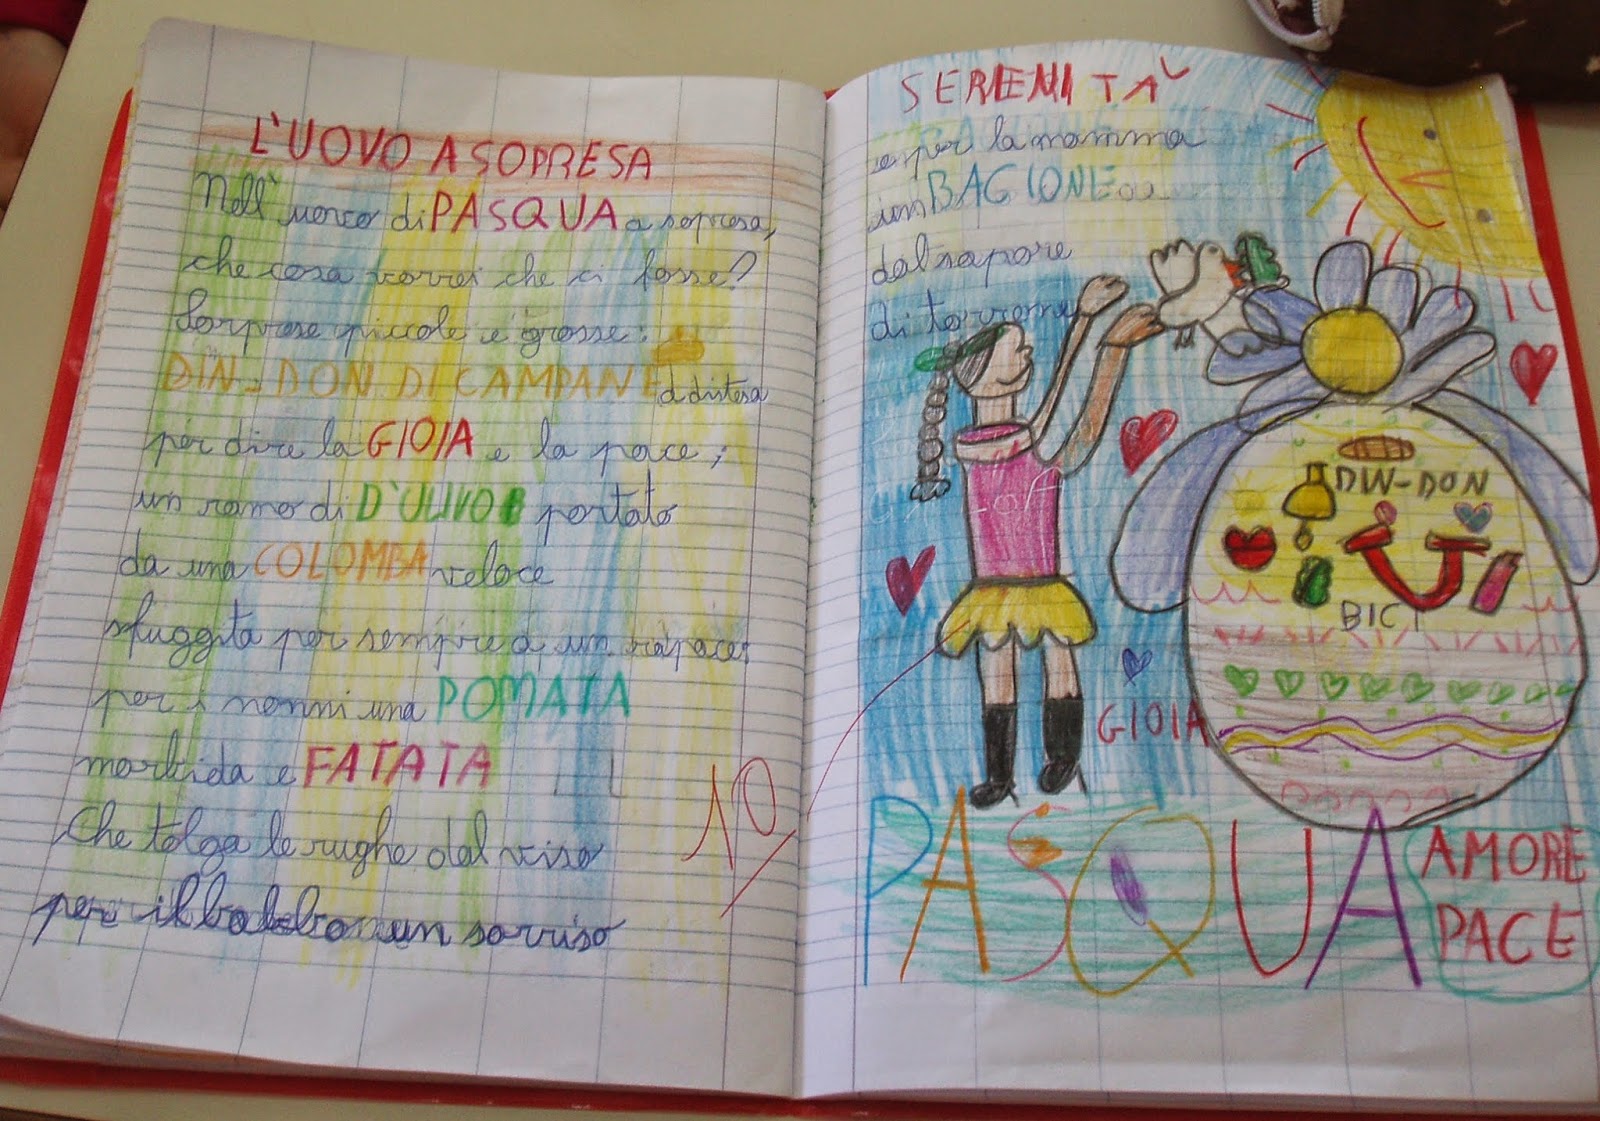 L'UOVO A SOPRESA
Nell' uovo di PASQUA a sopresa,
che cosa vorrei che ci fosse?
Sorprese piccole e grosse:
DIN-DON DI CAMPANE a distesa
per dire la GIOIA e la pace;
un ramo di D'ULIVO portato
da una COLOMBA veloce
sfuggita per sempre a un rapace;
per i nonni una POMATA
morbida e FATATA
Che tolga le rughe dal viso
per il babbo un sorriso
10
SERENITÀ
e per la mamma
un BACIONE
dal sapore
di torrone
DIN-DON
BICI
GIOIA
PASQUA
AMORE
PACE